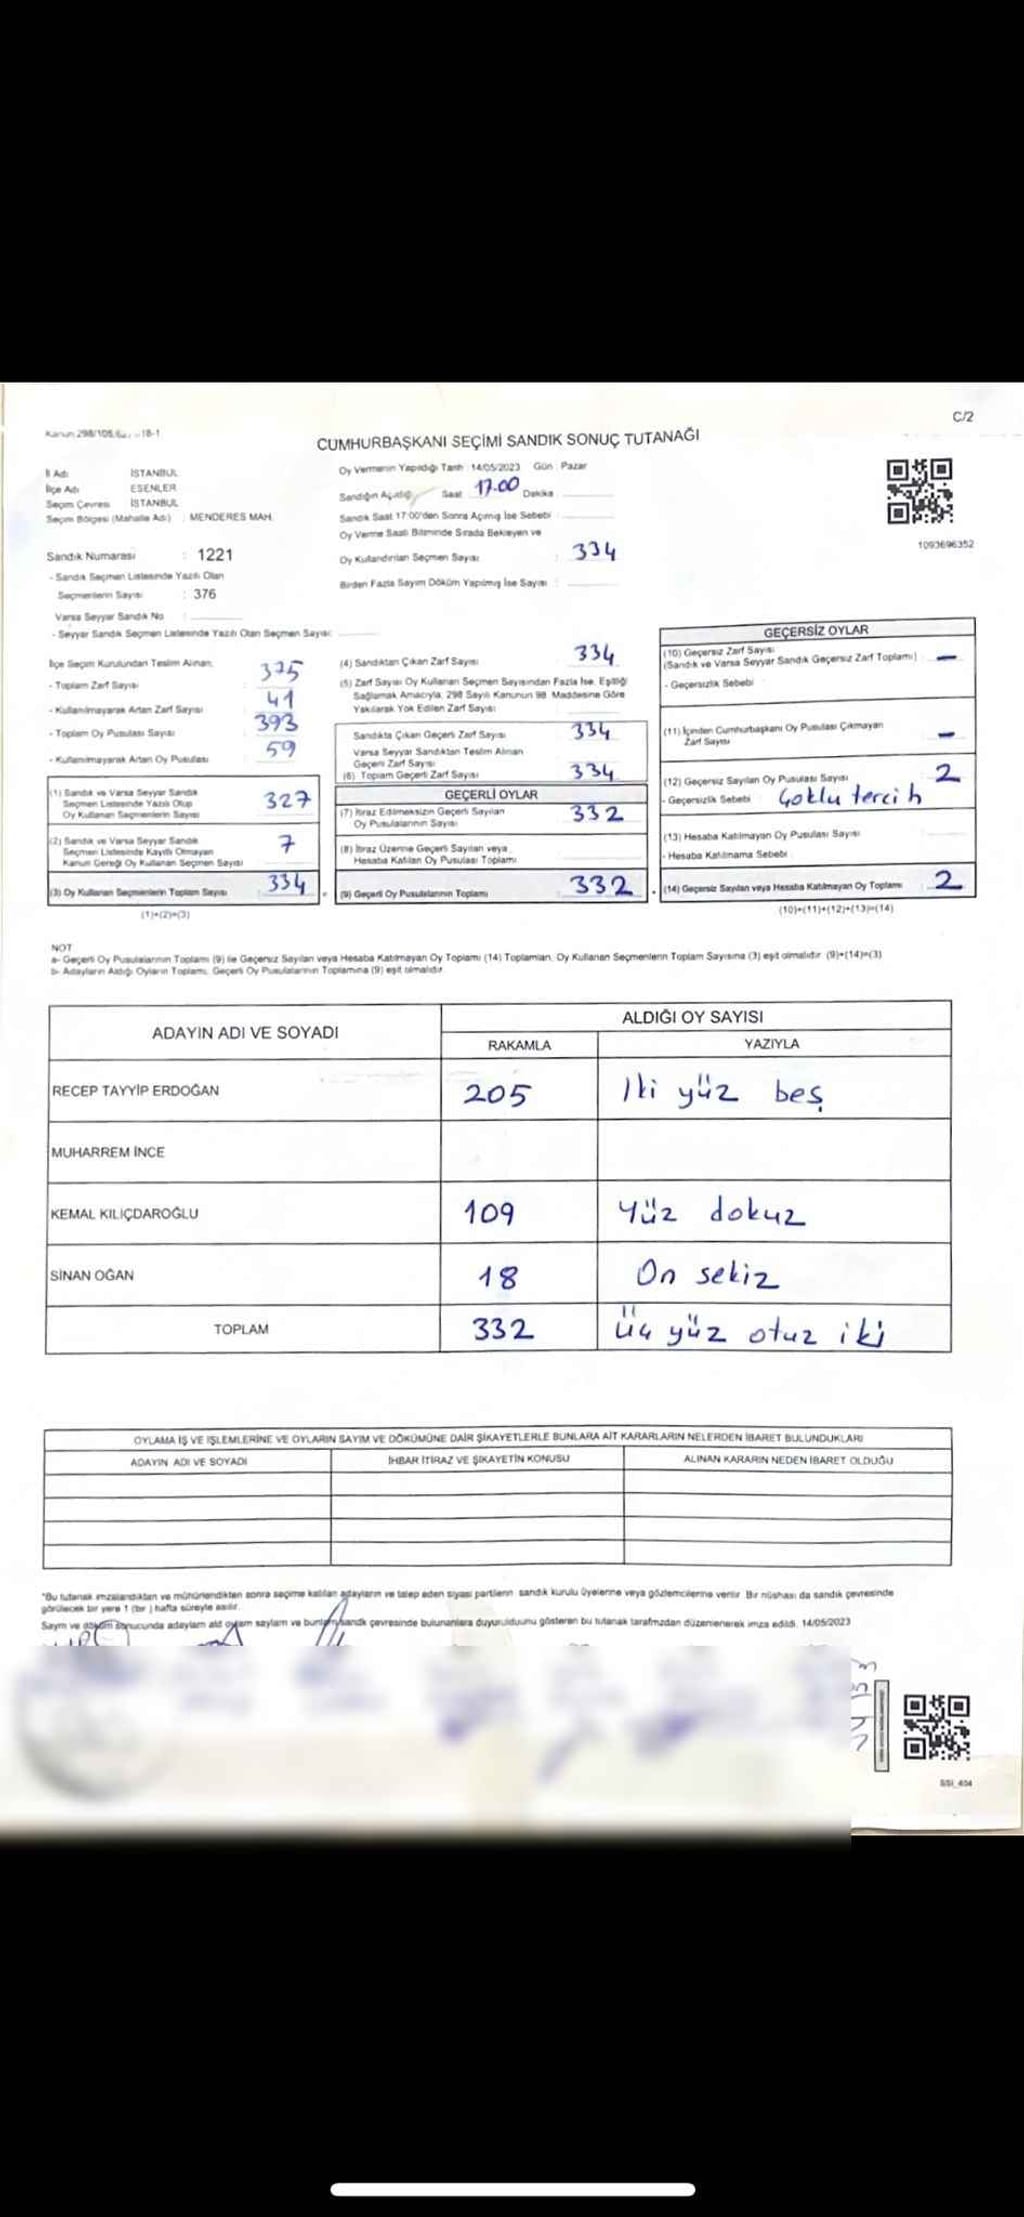 C/2
CUMHURBAŞKANI SEÇİMİ SANDIK SONUÇ TUTANAĞI
İl Adı : İSTANBUL
İlçe Adı : ESENLER
Seçim Çevresi : İSTANBUL
Seçim Bölgesi (Mahalle Adı) : MENDERES MAH.
Sandık Numarası : 1221
- Sandık Seçmen Listesinde Yazılı Olan
Seçmenlerin Sayısı : 376
Varsa Seyyar Sandık No :
- Seyyar Sandık Seçmen Listesinde Yazılı Olan Seçmen Sayısı:
Oy Vermenin Yapıldığı Tarih : 14/05/2023 Gün : Pazar
Sandığın Açıldığı Saat 17.00 Dakika
Sandık Saat 17:00'den Sonra Açılmış İse Sebebi :
Oy Verme Saati Bitiminde Sırada Bekleyen ve
Oy Kullandırılan Seçmen Sayısı : 334
Birden Fazla Sayım Döküm Yapılmış İse Sayısı :
1093696352
İlçe Seçim Kurulundan Teslim Alınan;
- Toplam Zarf Sayısı : 375
- Kullanılmayarak Artan Zarf Sayısı : 41
- Toplam Oy Pusulası Sayısı : 393
- Kullanılmayarak Artan Oy Pusulası : 59
(1) Sandık ve Varsa Seyyar Sandık
Seçmen Listesinde Yazılı Olup
Oy Kullanan Seçmenlerin Sayısı : 327
(2) Sandık ve Varsa Seyyar Sandık
Seçmen Listesinde Kayıtlı Olmayan
Kanun Gereği Oy Kullanan Seçmen Sayısı : 7
(3) Oy Kullanan Seçmenlerin Toplam Sayısı : 334
(1)+(2)=(3)
(4) Sandıktan Çıkan Zarf Sayısı : 334
(5) Zarf Sayısı Oy Kullanan Seçmen Sayısından Fazla İse, Eşitliği
Sağlamak Amacıyla, 298 Sayılı Kanunun 98. Maddesine Göre
Yakılarak Yok Edilen Zarf Sayısı :
Sandıkta Çıkan Geçerli Zarf Sayısı : 334
Varsa Seyyar Sandıktan Teslim Alınan
Geçerli Zarf Sayısı
(6) Toplam Geçerli Zarf Sayısı : 334
GEÇERLİ OYLAR
(7) İtiraz Edilmeksizin Geçerli Sayılan
Oy Pusulalarının Sayısı : 332
(8) İtiraz Üzerine Geçerli Sayılan veya
Hesaba Katılan Oy Pusulası Toplamı
(9) Geçerli Oy Pusulalarının Toplamı : 332
GEÇERSİZ OYLAR
(10) Geçersiz Zarf Sayısı
(Sandık ve Varsa Seyyar Sandık Geçersiz Zarf Toplamı) : -
- Geçersizlik Sebebi :
(11) İçinden Cumhurbaşkanı Oy Pusulası Çıkmayan
Zarf Sayısı : -
(12) Geçersiz Sayılan Oy Pusulası Sayısı : 2
- Geçersizlik Sebebi : Çoklu tercih
(13) Hesaba Katılmayan Oy Pusulası Sayısı :
- Hesaba Katılmama Sebebi :
(14) Geçersiz Sayılan veya Hesaba Katılmayan Oy Toplamı : 2
(10)+(11)+(12)+(13)=(14)
NOT
a- Geçerli Oy Pusulalarının Toplamı (9) ile Geçersiz Sayılan veya Hesaba Katılmayan Oy Toplamı (14) Toplamları, Oy Kullanan Seçmenlerin Toplam Sayısına (3) eşit olmalıdır. (9)+(14)=(3)
b- Adayların Aldığı Oyların Toplamı, Geçerli Oy Pusulalarının Toplamına (9) eşit olmalıdır.
ADAYIN ADI VE SOYADI
ALDIĞI OY SAYISI
RAKAMLA YAZIYLA
RECEP TAYYİP ERDOĞAN 205 İki yüz beş
MUHARREM İNCE
KEMAL KILIÇDAROĞLU 109 Yüz dokuz
SİNAN OĞAN 18 On sekiz
TOPLAM 332 Üç yüz otuz iki
OYLAMA İŞ VE İŞLEMLERİNE VE OYLARIN SAYIM VE DÖKÜMÜNE DAİR ŞİKAYETLERLE BUNLARA AİT KARARLARIN NELERDEN İBARET BULUNDUKLARI
ADAYIN ADI VE SOYADI İHBAR İTİRAZ VE ŞİKAYETİN KONUSU ALINAN KARARIN NEDEN İBARET OLDUĞU
*Bu tutanak imzalandıktan ve mühürlendikten sonra seçime katılan adayların ve talep eden siyasi partilerin sandık kurulu üyelerine veya gözlemcilerine verilir. Bir nüshası da sandık çevresinde
görülecek bir yere 1 (bir) hafta süreyle asılır.
Sayım ve döküm sonucunda adayların aldı oyların sayıları ve bunların sandık çevresinde bulunanlara duyurulduğunu gösteren bu tutanak tarafımızdan düzenlenerek imza edildi. 14/05/2023
SSI_404